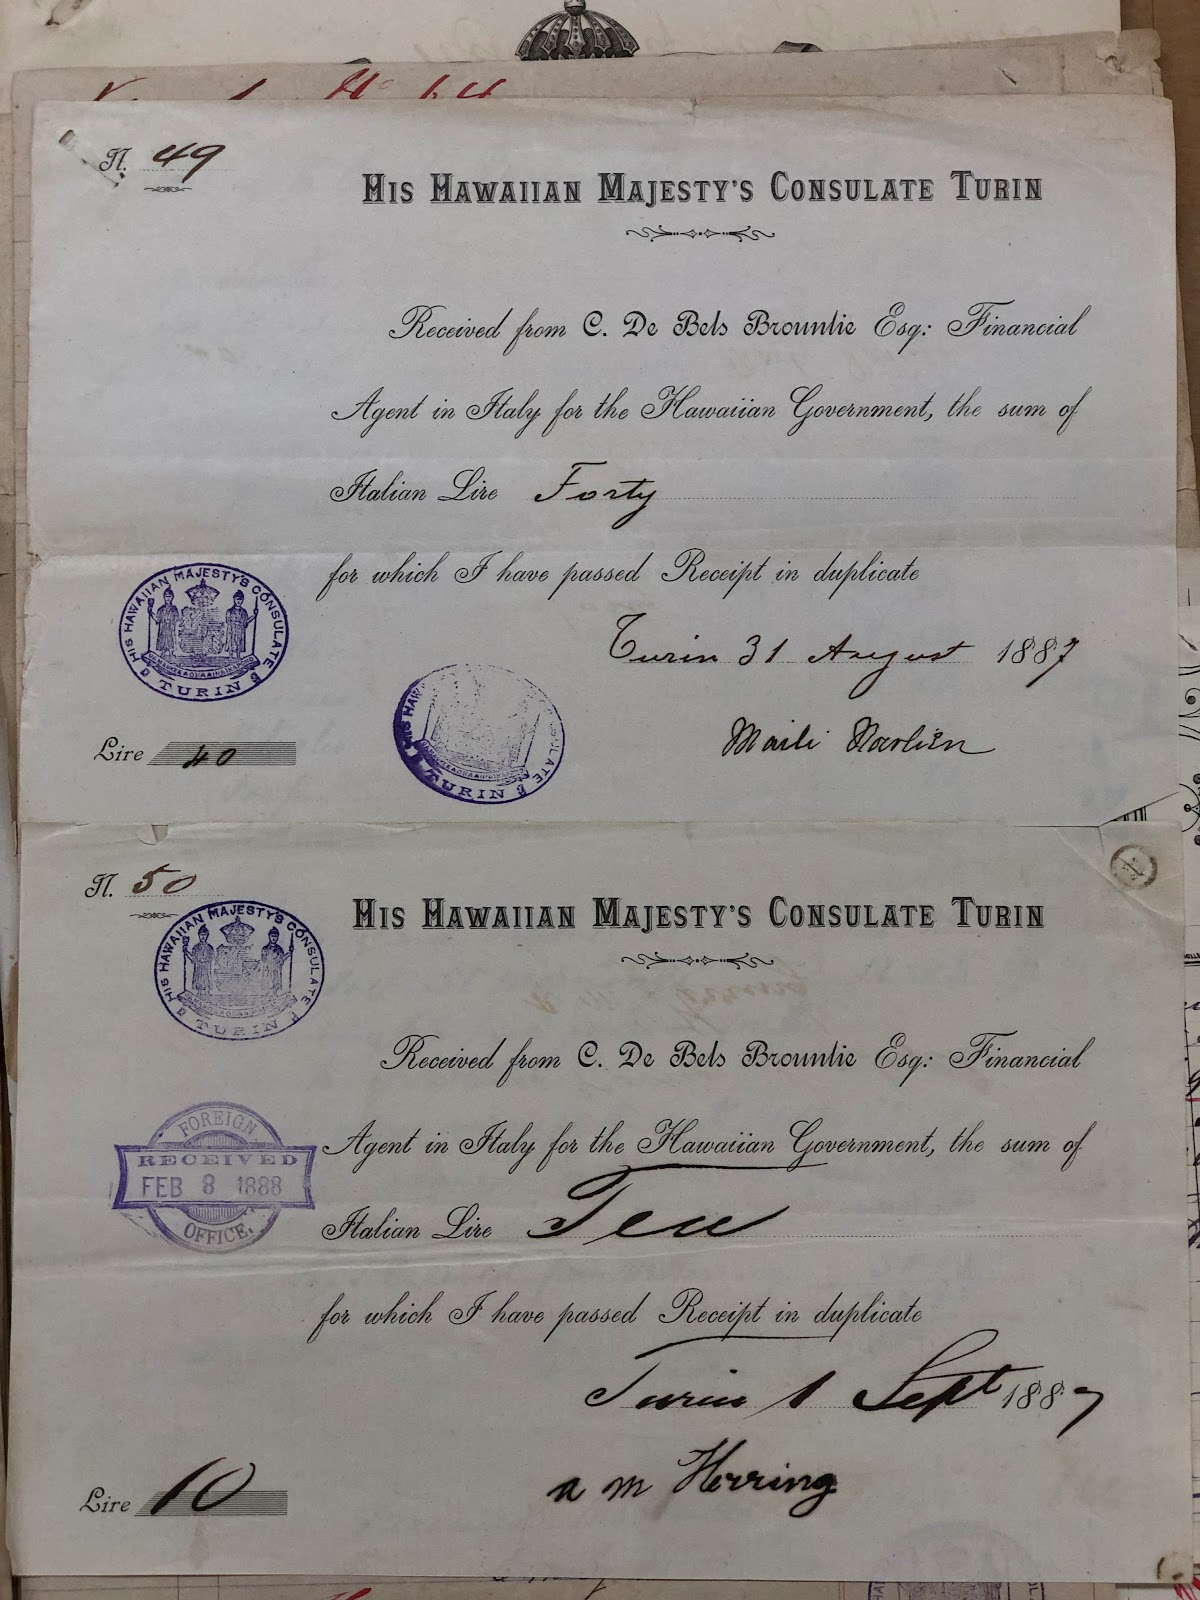 N. 49
HIS HAWAIIAN MAJESTY'S CONSULATE TURIN
Received from C. De Bels Brounlie Esq: Financial
Agent in Italy for the Hawaiian Government, the sum of
Italian Lire Forty
for which I have passed Receipt in duplicate
HIS HAWAIIAN MAJESTY'S CONSULATE
TURIN
Turin 31 August 1887
Lire 40
TURIN
N. 50
HIS HAWAIIAN MAJESTY'S CONSULATE TURIN
HIS HAWAIIAN MAJESTY'S CONSULATE
TURIN
Received from C. De Bels Brounlie Esq: Financial
Agent in Italy for the Hawaiian Government, the sum of
FOREIGN
RECEIVED
FEB 8 1888
OFFICE.
Italian Lire Ten
for which I have passed Receipt in duplicate
Turin 1 Sept 1887
a m Herring
Lire 10